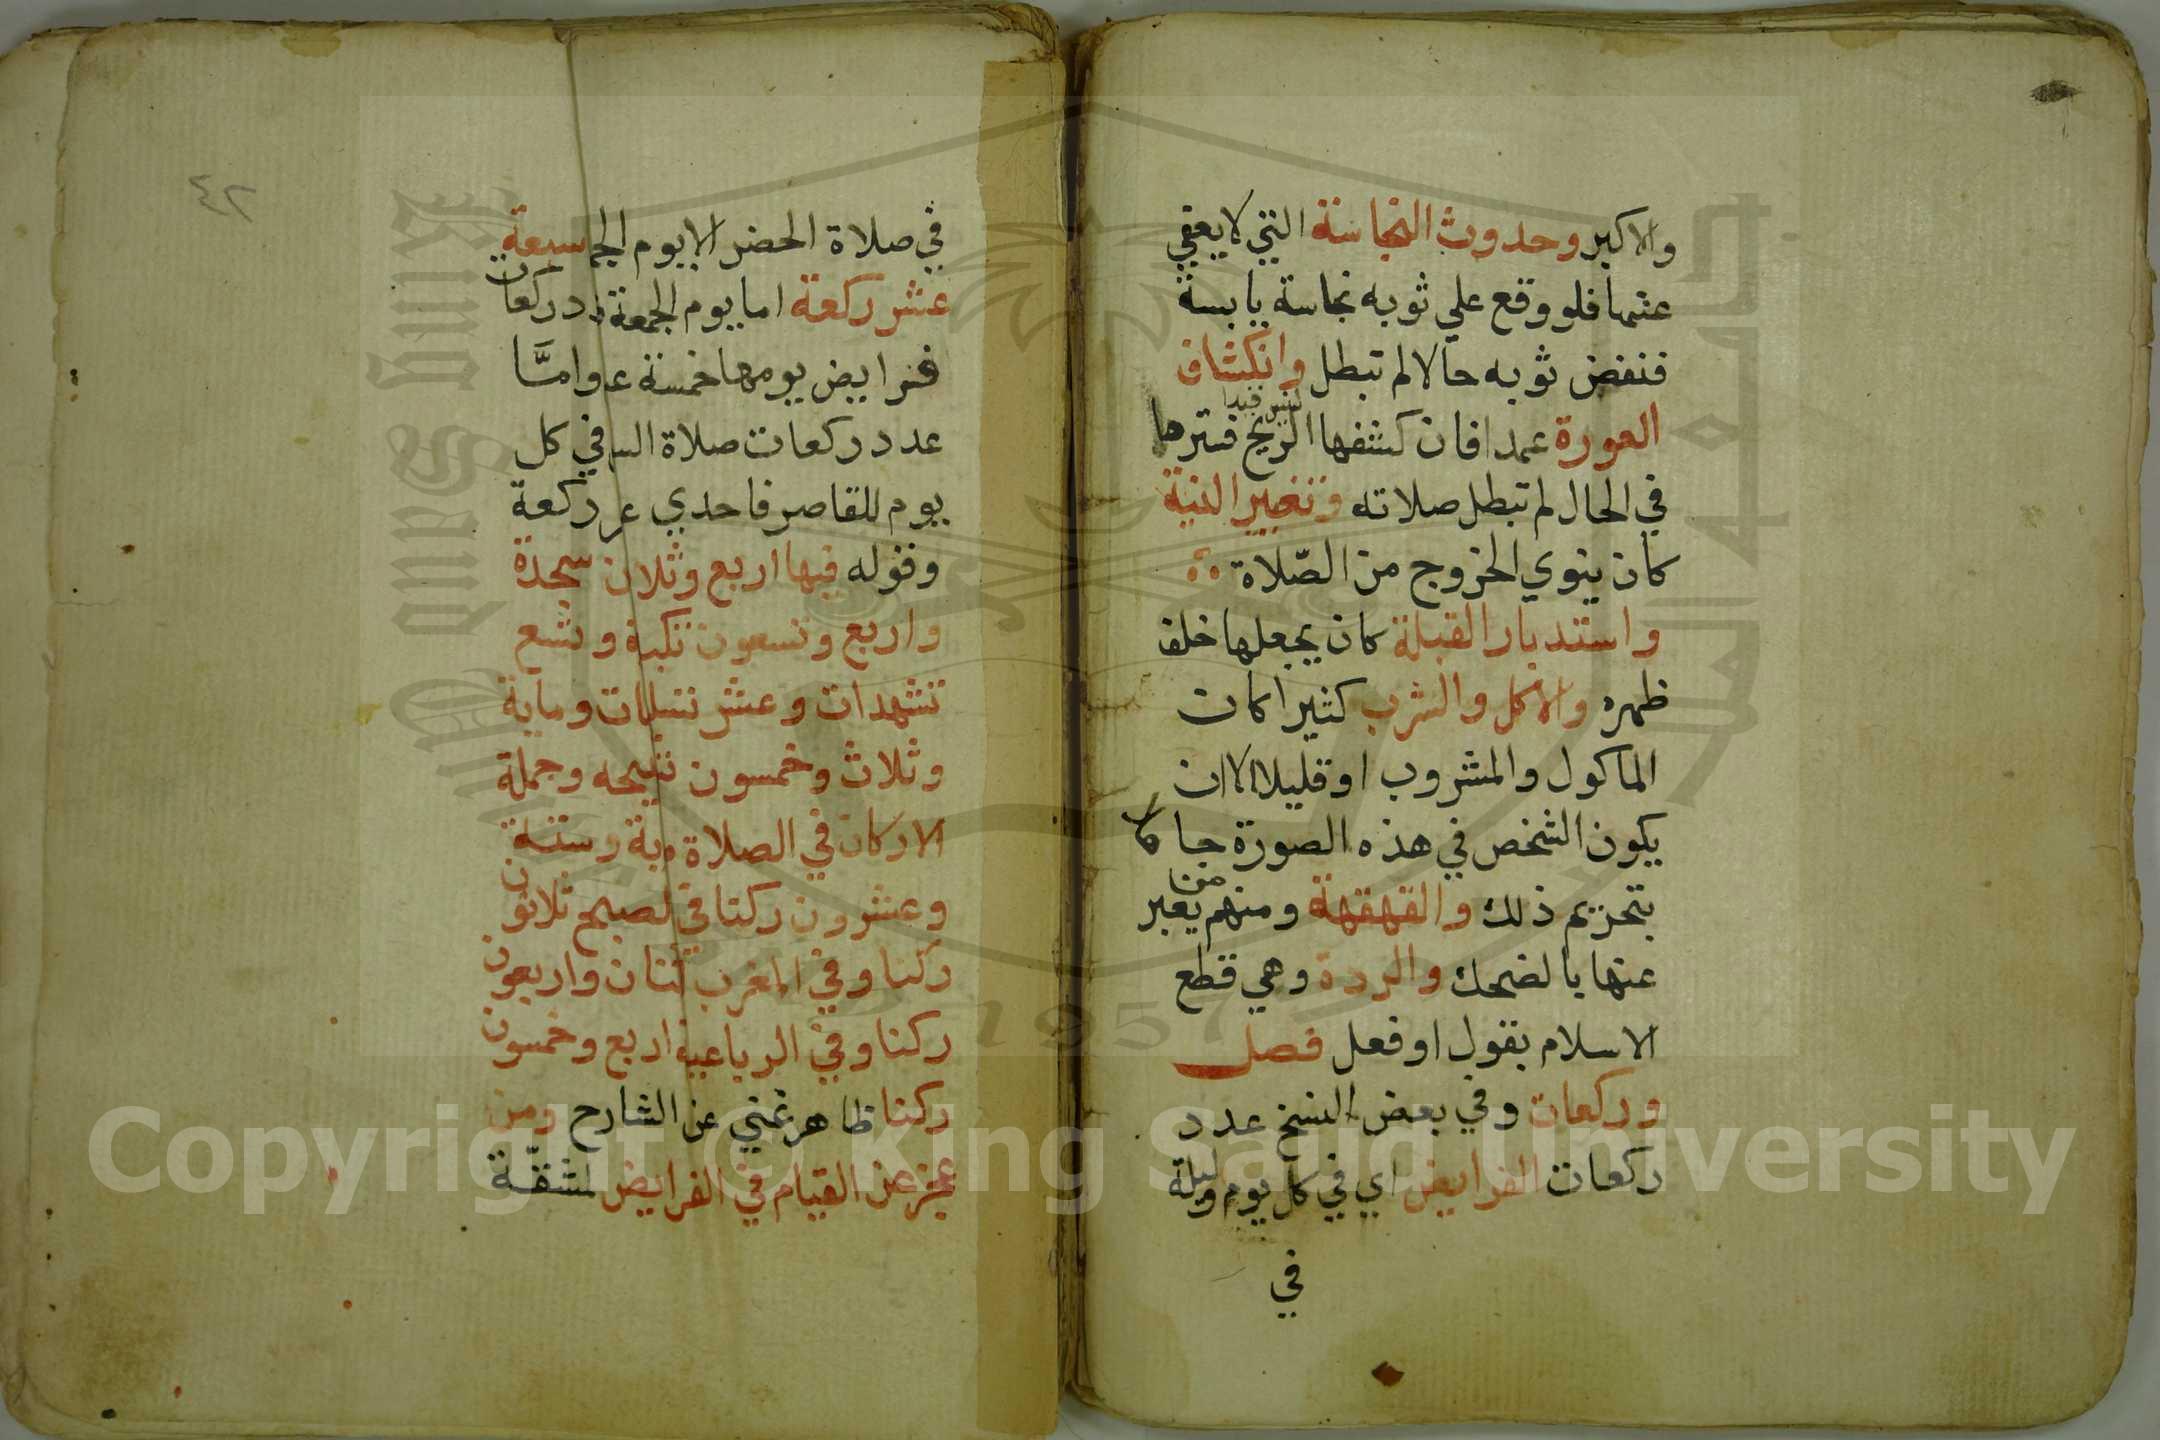 والاكبر وحدوث النجاسة التي لا يعفي
عنها فلو وقع علي ثوبه نجاسة يابسة
فنفض ثوبه حالا لم تبطل وانكشاف
العورة عمدا فان كشفها الريح فسترها
في الحال لم تبطل صلاته وتغيير النية
كان ينوي الخروج من الصّلاة
واستدبار القبلة كان يجعلها خلف
ظهره والاكل والشرب كثيرا كان
الماكول والمشروب او قليلا الا ان
يكون الشخص في هذه الصورة جاهلا
بتحريم ذلك والقهقهة ومنهم من يعبر
عنها بالضحك والردة وهي قطع
الاسلام بقول او فعل فصل
وركعات وفي بعض النسخ عدد
ركعات الفرايض اي في كل يوم وليلة
في
٤٢
في صلاة الحضر الا يوم الجمعة سبعة
عشر ركعة اما يوم الجمعة فعدد ركعات
فرايض يومها خمسة عشر وامَّا
عدد ركعات صلاة السفر في كل
يوم للقاصر فاحدي عشر ركعة
وقوله فيها اربع وثلاثون سجدة
واربع وتسعون تكبيرة وتسع
تشهدات وعشر تسليمات ومايه
وثلاث وخمسون تسبيحه وجملة
الاركان في الصلاة مية وستة
وعشرون ركنا في الصبح ثلاثون
ركنا وفي المغرب اثنان واربعون
ركنا وفي الرباعية اربع وخمسون
ركنا ظاهر غني عن الشارح ومن
عجز عن القيام في الفرايض لمشقّة
Copyright © King Saud University
King Saud University
1957